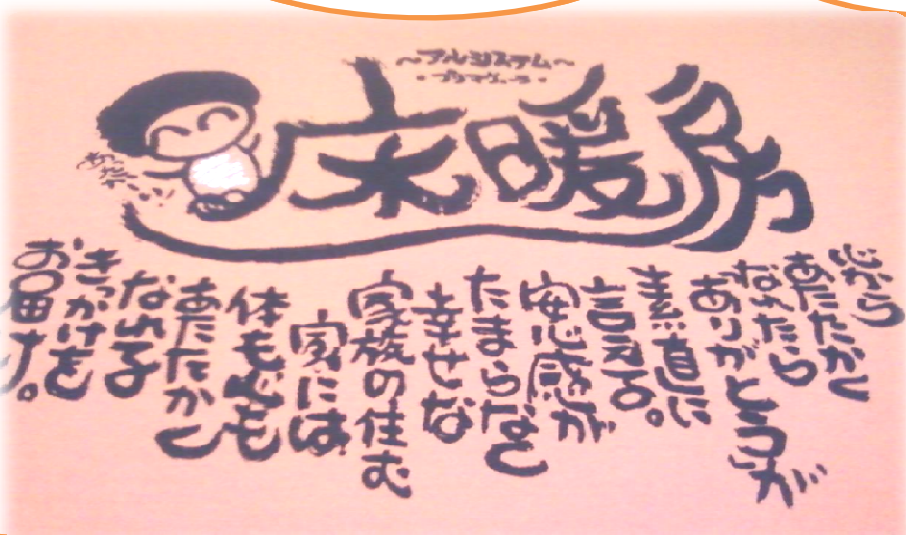 〜アルシステム〜
・プリマヴェーラ・
床暖房
あったか〜い
心から
あたたかく
なれたら
ありがとうが
素直に
言える。
安心感が
たまらなく
幸せな
家族の住む
家には
体も心も
あたたかく
なれる
きっかけを
お届け。